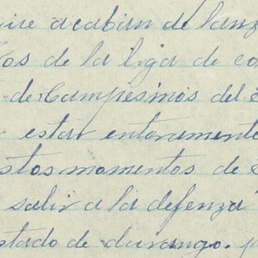 acaban de lanz
os de la liga de co
de Campesinos del E
estar enteramente
stos momentos de
salir a la defenza
stado de durango. p